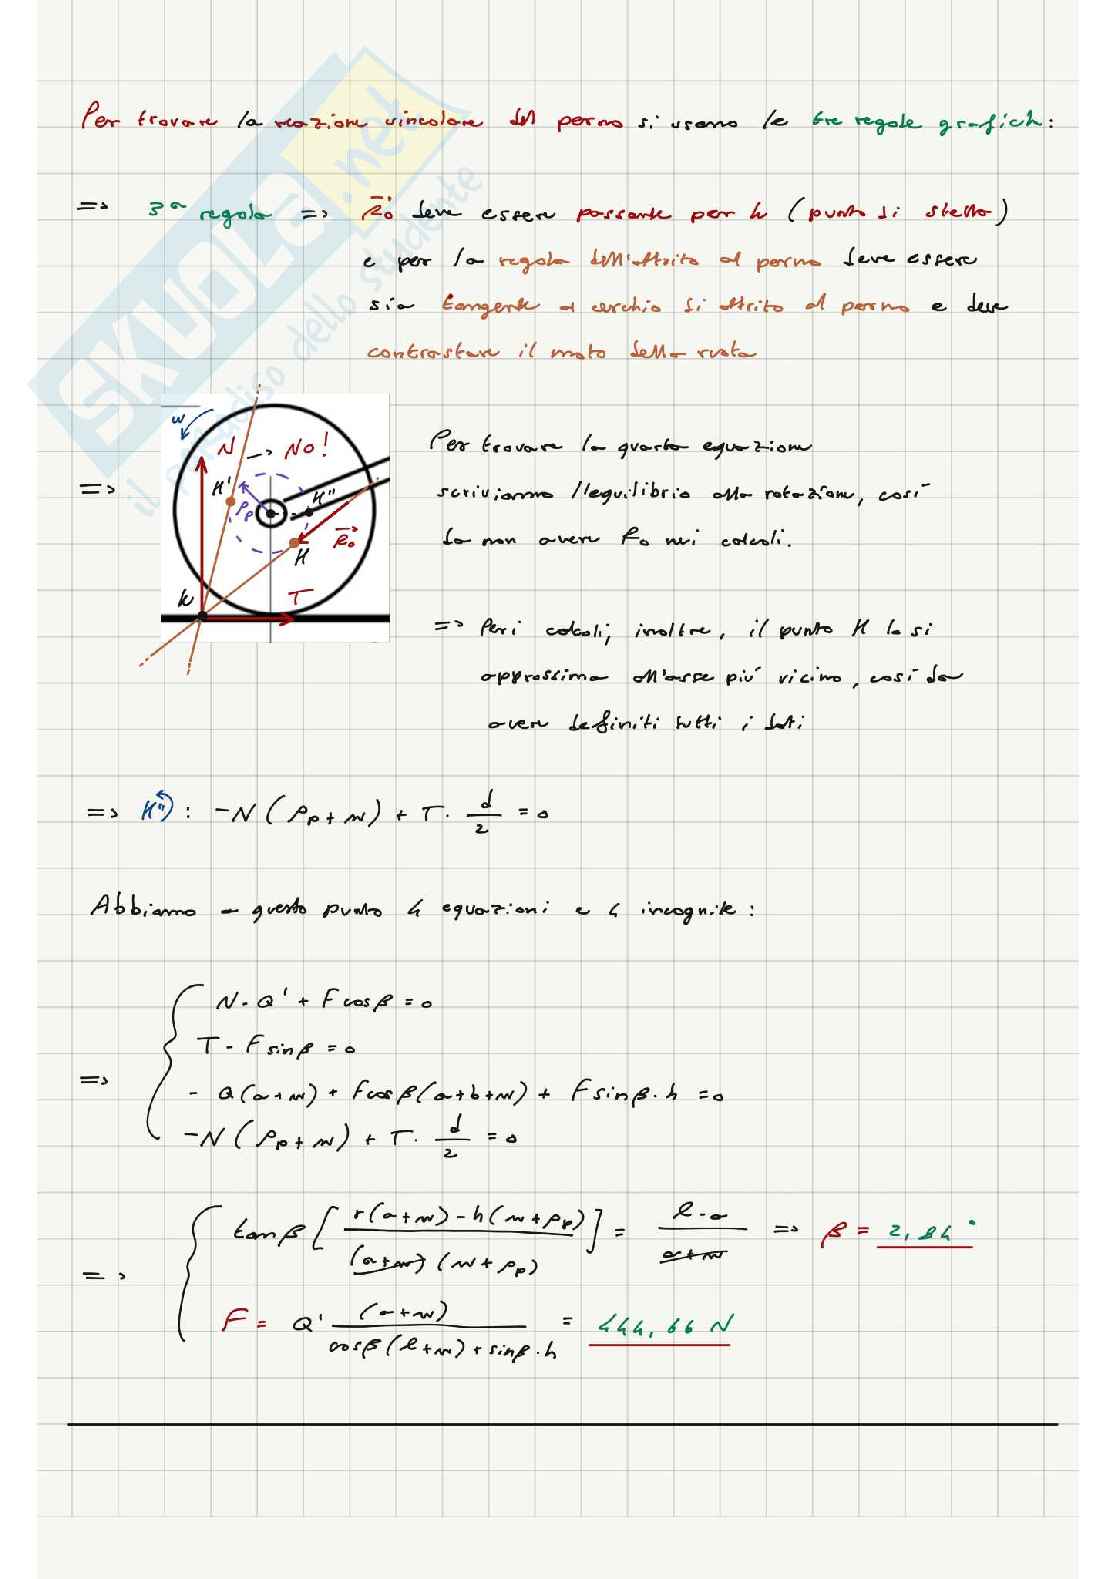 Per trovare la reazione vincolare del perno si usano le tre regole grafich:
=> 3ª regola => R₀ deve essere passante per k (punto di stello)
e per la regola dell'attrito al perno deve essere
sia tangente al cerchio di attrito al perno e deve
contrastare il moto della ruota
ω
N -> NO!
H'
ρp
H''
=>
R₀
H
k
T
Per trovare la quarta equazione
scriviamo l'equilibrio alla rotazione, così
da non avere R₀ nei calcoli.
=> Per i calcoli, inoltre, il punto H lo si
approssima all'asse più vicino, così da
avere definiti tutti i dati
=> H''): -N(ρp+u) + T · d/2 = 0
Abbiamo a questo punto 4 equazioni e 4 incognite:
N - Q' + F cosβ = 0
T - F sinβ = 0
=>
- Q(a+u) + Fcosβ(a+b+u) + F sinβ·h = 0
-N(ρp+u) + T · d/2 = 0
tanβ [r(a+u)-h(u+ρp) / (a+u)(u+ρp)] = l-a / a+u => β = 2,84°
=>
F = Q' (a+u) / cosβ(l+u)+sinβ·h = 444,66 N
SKUOLA.net
il paradiso dello studente